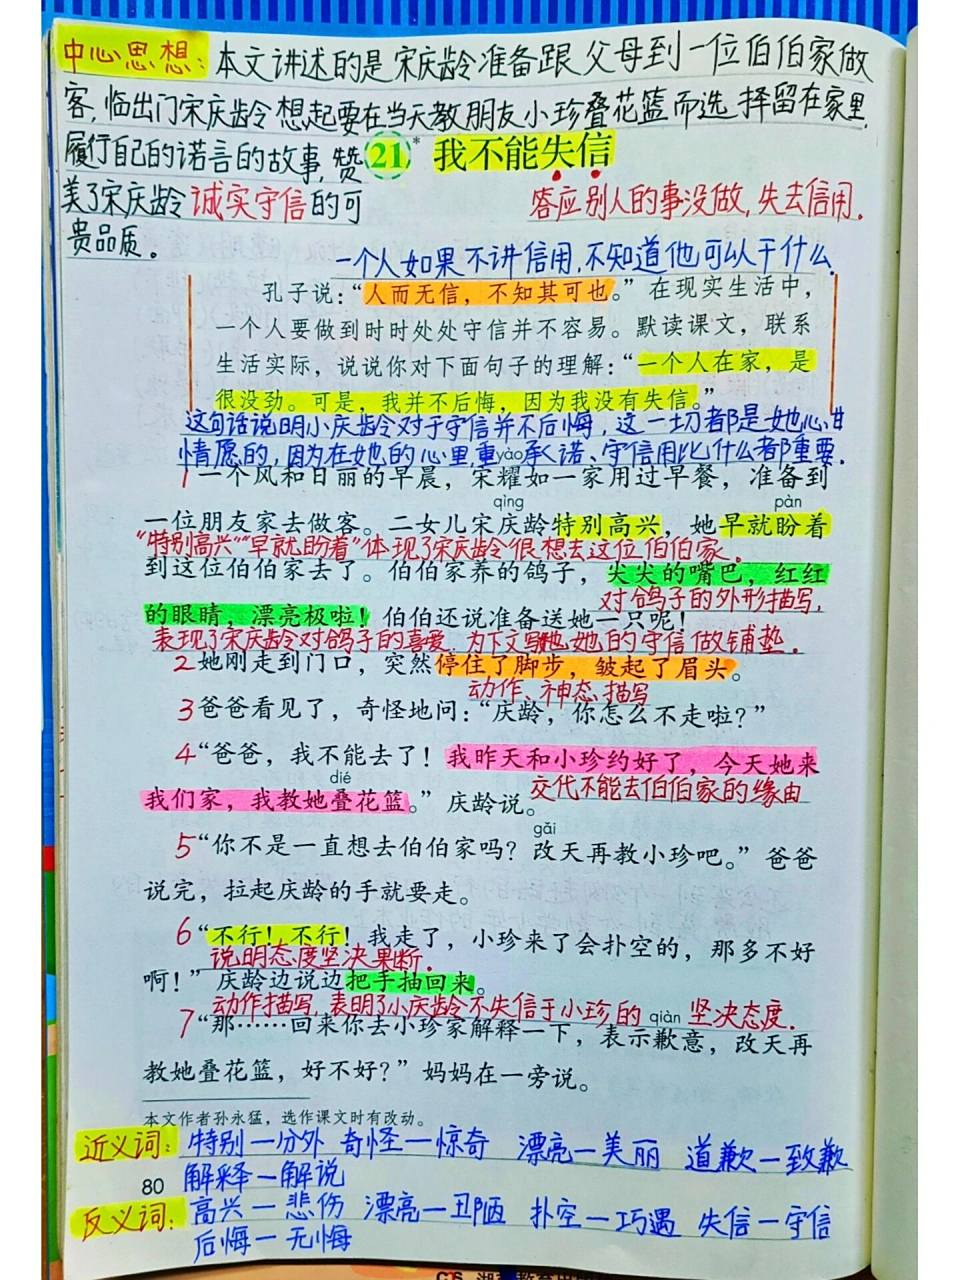 中心思想：本文讲述的是宋庆龄准备跟父母到一位伯伯家做
客，临出门宋庆龄想起要在当天教朋友小珍叠花篮而选择留在家里，
履行自己的诺言的故事，赞
美了宋庆龄诚实守信的可
贵品质。
21* 我不能失信
答应别人的事没做，失去信用。
一个人如果不讲信用，不知道他可以干什么。
孔子说：“人而无信，不知其可也。”在现实生活中，
一个人要做到时时处处守信并不容易。默读课文，联系
生活实际，说说你对下面句子的理解：“一个人在家，是
很没劲。可是，我并不后悔，因为我没有失信。”
这句话说明小庆龄对于守信并不后悔，这一切都是她心甘
情愿的，因为在她的心里，重承诺、守信用比什么都重要。
yào
1 一个风和日丽的早晨，宋耀如一家用过早餐，准备到
qìng pàn
一位朋友家去做客。二女儿宋庆龄特别高兴，她早就盼着
“特别高兴”“早就盼着”体现了宋庆龄很想去这位伯伯家。
到这位伯伯家去了。伯伯家养的鸽子，尖尖的嘴巴，红红
对鸽子的外形描写，
的眼睛，漂亮极啦！伯伯还说准备送她一只呢！
表现了宋庆龄对鸽子的喜爱，为下文写她的守信做铺垫。
2 她刚走到门口，突然停住了脚步，皱起了眉头。
动作、神态描写
3 爸爸看见了，奇怪地问：“庆龄，你怎么不走啦？”
4 “爸爸，我不能去了！我昨天和小珍约好了，今天她来
dié
交代不能去伯伯家的缘由
我们家，我教她叠花篮。”庆龄说。
gǎi
5 “你不是一直想去伯伯家吗？改天再教小珍吧。”爸爸
说完，拉起庆龄的手就要走。
6 “不行！不行！我走了，小珍来了会扑空的，那多不好
说明态度坚决果断。
啊！”庆龄边说边把手抽回来。
动作描写，表明了小庆龄不失信于小珍的坚决态度。
qiàn
7 “那……回来你去小珍家解释一下，表示歉意，改天再
教她叠花篮，好不好？”妈妈在一旁说。
本文作者孙永猛，选作课文时有改动。
近义词：特别—分外 奇怪—惊奇 漂亮—美丽 道歉—致歉
解释—解说
80
反义词：高兴—悲伤 漂亮—丑陋 扑空—巧遇 失信—守信
后悔—无悔